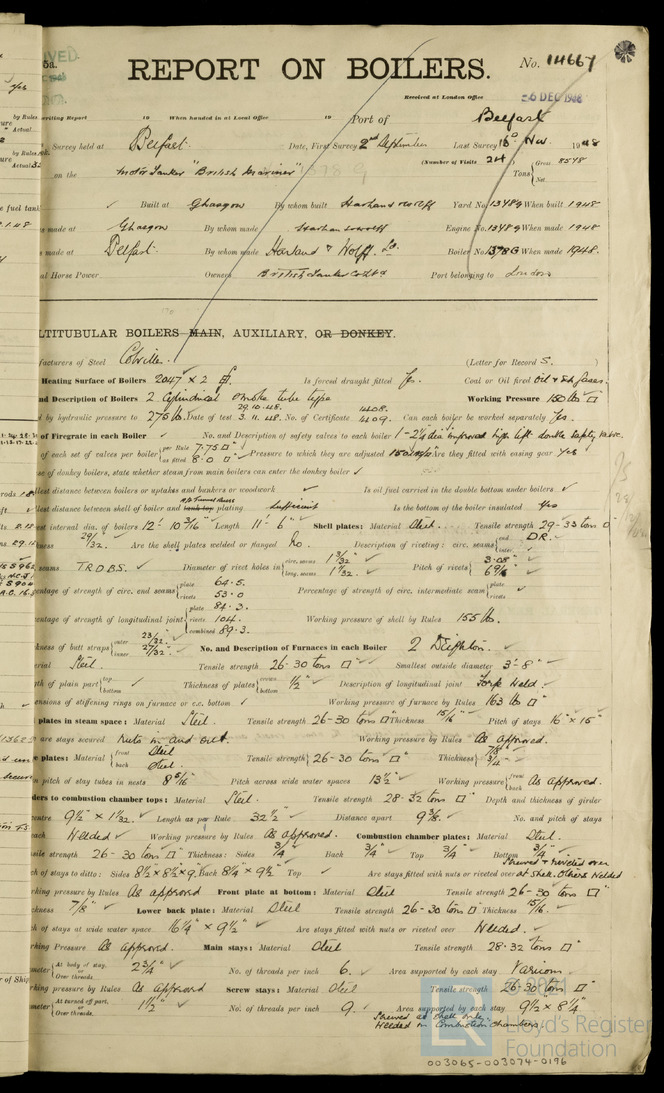 5a.
REPORT ON BOILERS.
No. 14667
Received at London Office 6 DEC 1948
writing Report 19 When handed in at Local Office 19 Port of Belfast
Survey held at Belfast. Date, First Survey 2nd September Last Survey 16th Nov. 1948
(Number of Visits 24) Tons Gross 8548 Net
on the Motor Tanker "British Mariner"
Built at Glasgow By whom built Harland & Wolff Yard No. 1348G When built 1948
s made at Glasgow By whom made Harland & Wolff Engine No. 1348G When made 1948
s made at Belfast. By whom made Harland & Wolff. Ld. Boiler No. 1378G When made 1948.
al Horse Power Owners British Tanker Co Ltd Port belonging to London
LTITUBULAR BOILERS MAIN, AUXILIARY, OR DONKEY.
facturers of Steel Colvilles. (Letter for Record S. )
Heating Surface of Boilers 2047 x 2 Is forced draught fitted Yes. Coal or Oil fired Oil & Exh gases.
nd Description of Boilers 2 Cylindrical smoke tube type Working Pressure 150 lbs □
d by hydraulic pressure to 275 lbs. Date of test 29.10.48. 3.11.48. No. of Certificate 1408. 1409. Can each boiler be worked separately Yes.
of Firegrate in each Boiler ✓ No. and Description of safety valves to each boiler 1-2¼ dia improved high lift double safety valve.
of each set of valves per boiler per Rule 7.75□" as fitted 8.0□" Pressure to which they are adjusted 150 lbs Are they fitted with easing gear Yes
se of donkey boilers, state whether steam from main boilers can enter the donkey boiler ✓
llest distance between boilers or uptakes and bunkers or woodwork ✓ Is oil fuel carried in the double bottom under boilers ✓
llest distance between shell of boiler and tank top plating Sufficient Is the bottom of the boiler insulated Yes
est internal dia. of boilers 12'- 10 3/16" Length 11'- 6" Shell plates: Material Steel. Tensile strength 29-33 tons □
kness 29/32. Are the shell plates welded or flanged No. Description of riveting: circ. seams end D.R. inter. ✓
seams T.R.D.B.S. ✓ Diameter of rivet holes in circ. seams 1 3/32" long. seams 1 1/32" Pitch of rivets 3.08" 6 9/16
centage of strength of circ. end seams plate 64.5. rivets 53.0 Percentage of strength of circ. intermediate seam plate rivets
centage of strength of longitudinal joint plate 84.3. rivets 104. combined 89.3. Working pressure of shell by Rules 155 lbs.
kness of butt straps outer 23/32. inner 27/32. No. and Description of Furnaces in each Boiler 2 Deighton.
erial Steel. Tensile strength 26-30 tons □" Smallest outside diameter 3'-8"
gth of plain part top bottom Thickness of plates crown bottom 1/2" Description of longitudinal joint Forge Weld.
ensions of stiffening rings on furnace or c.c. bottom ✓ Working pressure of furnace by Rules 163 lb □"
plates in steam space: Material Steel. Tensile strength 26-30 tons □" Thickness 15/16" Pitch of stays 16" x 15"
are stays secured Nuts in and out. Working pressure by Rules As approved.
e plates: Material front Steel back Steel. Tensile strength 26-30 tons □" Thickness 7/8" 3/4"
n pitch of stay tubes in nests 8 5/16 Pitch across wide water spaces 13 1/2" Working pressure front back As approved.
ders to combustion chamber tops: Material Steel. Tensile strength 28-32 tons □" Depth and thickness of girder
entre 9 1/2" x 1 1/32. Length as per Rule 32 1/2 Distance apart 9 3/8. No. and pitch of stays
each Welded Working pressure by Rules As approved. Combustion chamber plates: Material Steel.
sile strength 26-30 tons □" Thickness: Sides 3/4" Back 3/4" Top 3/4 Bottom 3/4"
ch of stays to ditto: Sides 8 1/2 x 8 1/2 x 9. Back 8 1/4 x 9 1/2" Top Are stays fitted with nuts or riveted over Screwed & riveted over at Shell. Others Welded
rking pressure by Rules As approved Front plate at bottom: Material Steel Tensile strength 26-30 tons
ckness 7/8" Lower back plate: Material Steel Tensile strength 26-30 tons □" Thickness 15/16.
ch of stays at wide water space 16 1/4" x 9 1/2" Are stays fitted with nuts or riveted over Welded.
rking Pressure As approved. Main stays: Material Steel Tensile strength 28-32 tons □"
meter At body of stay, or Over threads. 2 3/4" No. of threads per inch 6. Area supported by each stay Various
rking pressure by Rules As approved Screw stays: Material Steel Tensile strength 26-30 tons □"
meter At turned off part, or Over threads. 1 1/2" No. of threads per inch 9. Area supported by each stay 9 1/2 x 8 1/4"
Screwed at Shell only.
Welded in Combustion Chambers.
© 2021
LR Lloyd's Register
Foundation
003065-003074-0196